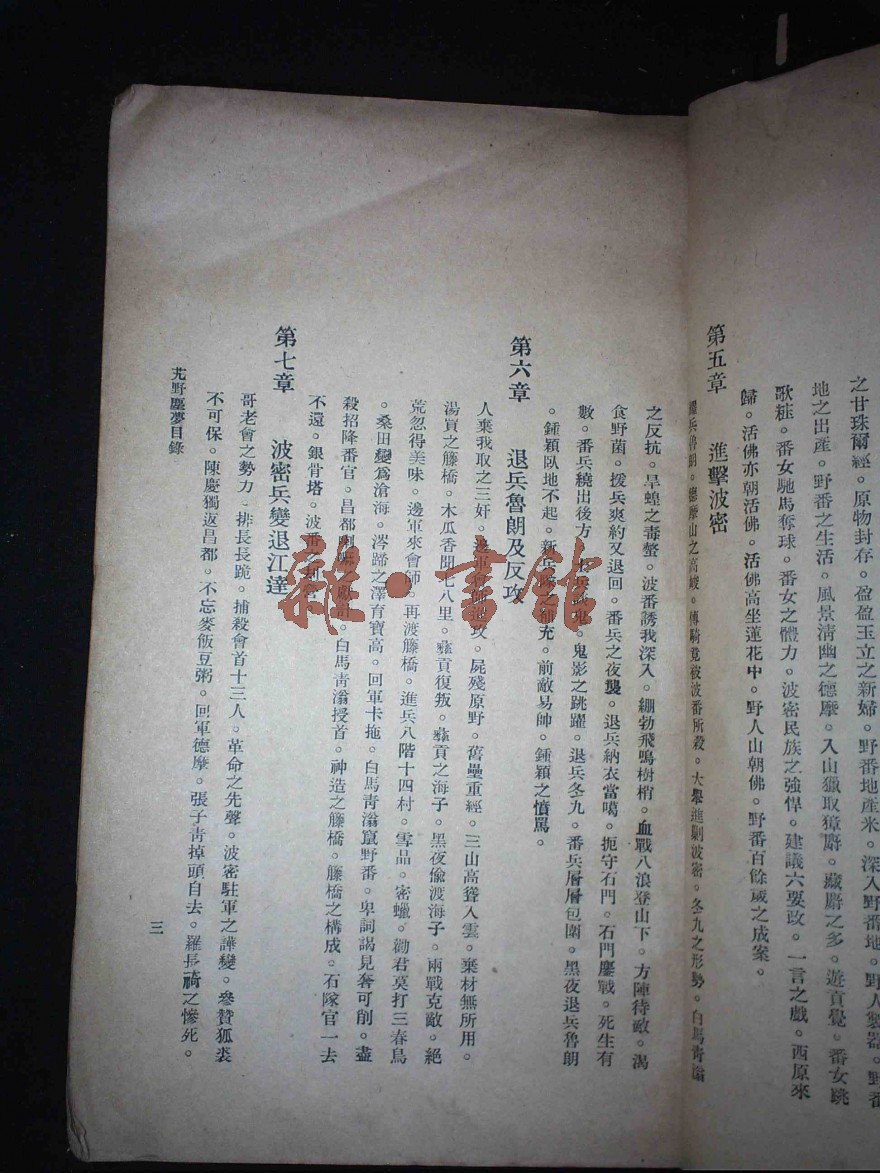 之甘珠爾經。原物封存。盈盈玉立之新婦。野番地產米。深入野番地。野人製器。野番
地之出產。野番之生活。風景清幽之德摩。入山獵取獐麝。藏麝之多。遊貢覺。番女跳
歌粧。番女馳馬奪球。番女之體力。波密民族之強悍。建議六要政。一言之戲。西原來
歸。活佛亦朝活佛。活佛高坐蓮花中。野人山朝佛。野番百餘歲之成案。
第五章 進擊波密
羅兵魯朗。德摩山之高峻。傳騎竟被波番所殺。大舉進剿波密。冬九之形勢。白馬青翁
之反抗。旱蝗之毒螫。波番誘我深入。綳勃飛鳴樹梢。血戰八浪登山下。方陣待敵。渴
食野菌。撥兵爽約又退回。番兵之夜襲。退兵納衣當噶。扼守石門。石門鏖戰。死生有
數。番兵繞出後方。鬼影之跳躍。退兵冬九。番兵層層包圍。黑夜退兵魯朗
。鍾穎臥地不起。新兵隊之補充。前敵易帥。鍾穎之憤罵。
第六章 退兵魯朗及反攻
人棄我取之三奸。邊軍會師進攻。屍殘原野。舊壘重經。三山高聳入雲。棄材無所用。
湯買之藤橋。木瓜香聞七八里。彝貢復叛。彝貢之海子。黑夜偷渡海子。兩戰克敵。絕
荒忽得美味。邊軍來會師。再渡藤橋。進兵八階十四村。雪品。密蠟。勸君莫打三春鳥
。桑田變爲滄海。涔蹄之澤育寶高。回軍卡拖。白馬青翁竄野番。卑詞謁見奢可削。盡
殺招降番官。昌都喇嘛之獻計。白馬青翁授首。神造之藤橋。藤橋之構成。石隊官一去
不還。銀骨塔。波番之刑官
第七章 波密兵變退江達
哥老會之勢力。排長長跪。捕殺會首十三人。革命之先聲。波密駐軍之譁變。參贊狐裘
不可保。陳慶獨返昌都。不忘麥飯豆粥。回軍德摩。張子青掉頭自去。羅長裿之慘死。
艽野塵夢目錄
三
雜·書館